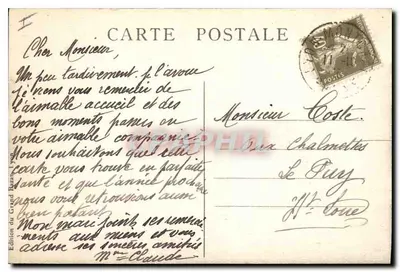 CARTE POSTALE
Cher Monsieur,
Un peu tardivement, je l'avoue
je viens vous remercier de
l'aimable accueil et des
bons moments passés en
votre aimable compagnie.
Nous souhaitons que cette
carte vous trouve en parfaite
santé et que l'année prochaine
nous vous retrouvions aussi
bien portant.
Mon mari joint ses remercie-
ments aux miens et vous
adresse ses sincères amitiés
Mme Claude
Monsieur Coste.
rue Chalmettes
Le Puy
Hte Loire
POSTES
Edition du Grand Bazar